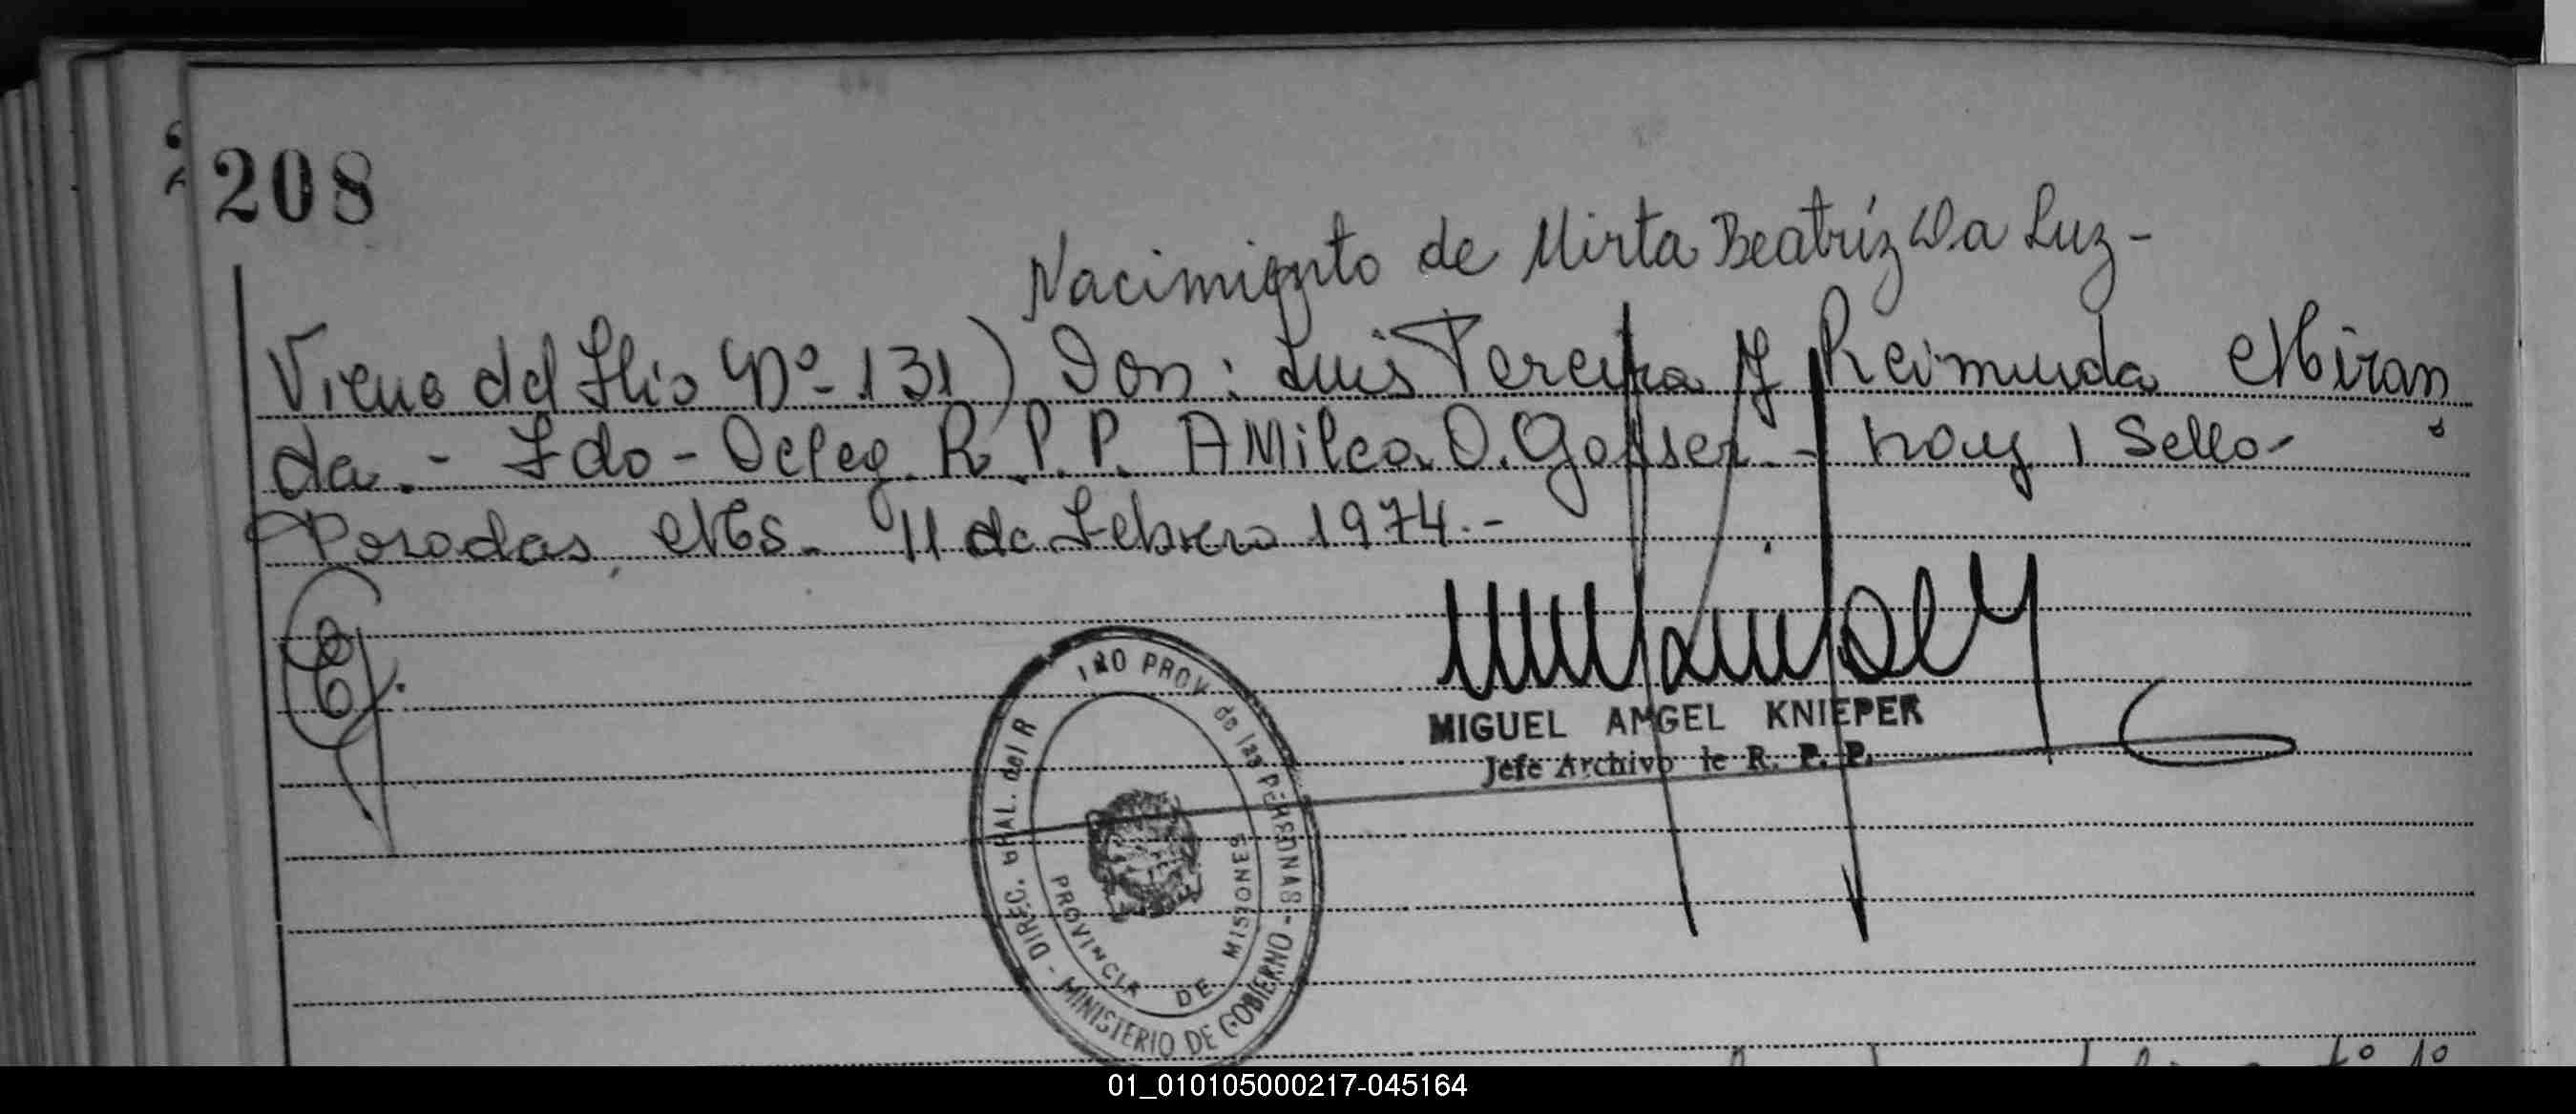 208
Nacimiento de Mirta Beatríz Da Luz-
Viene del Flio Nº- 131) Don: Luis Pereira y Reimunda Miran
da.- Fdo- Deleg. R. P. P. AMilca. O. Gasser.- hay 1 Sello-
Posadas, Ms. 11 de Febrero 1974.-
MIGUEL ANGEL KNIEPER
Jefe Archivo de R. P. P.
DIREC. GRAL. del R PROV de las PERSONAS - MINISTERIO DE GOBIERNO -
PROVINCIA DE MISIONES
01_010105000217-045164